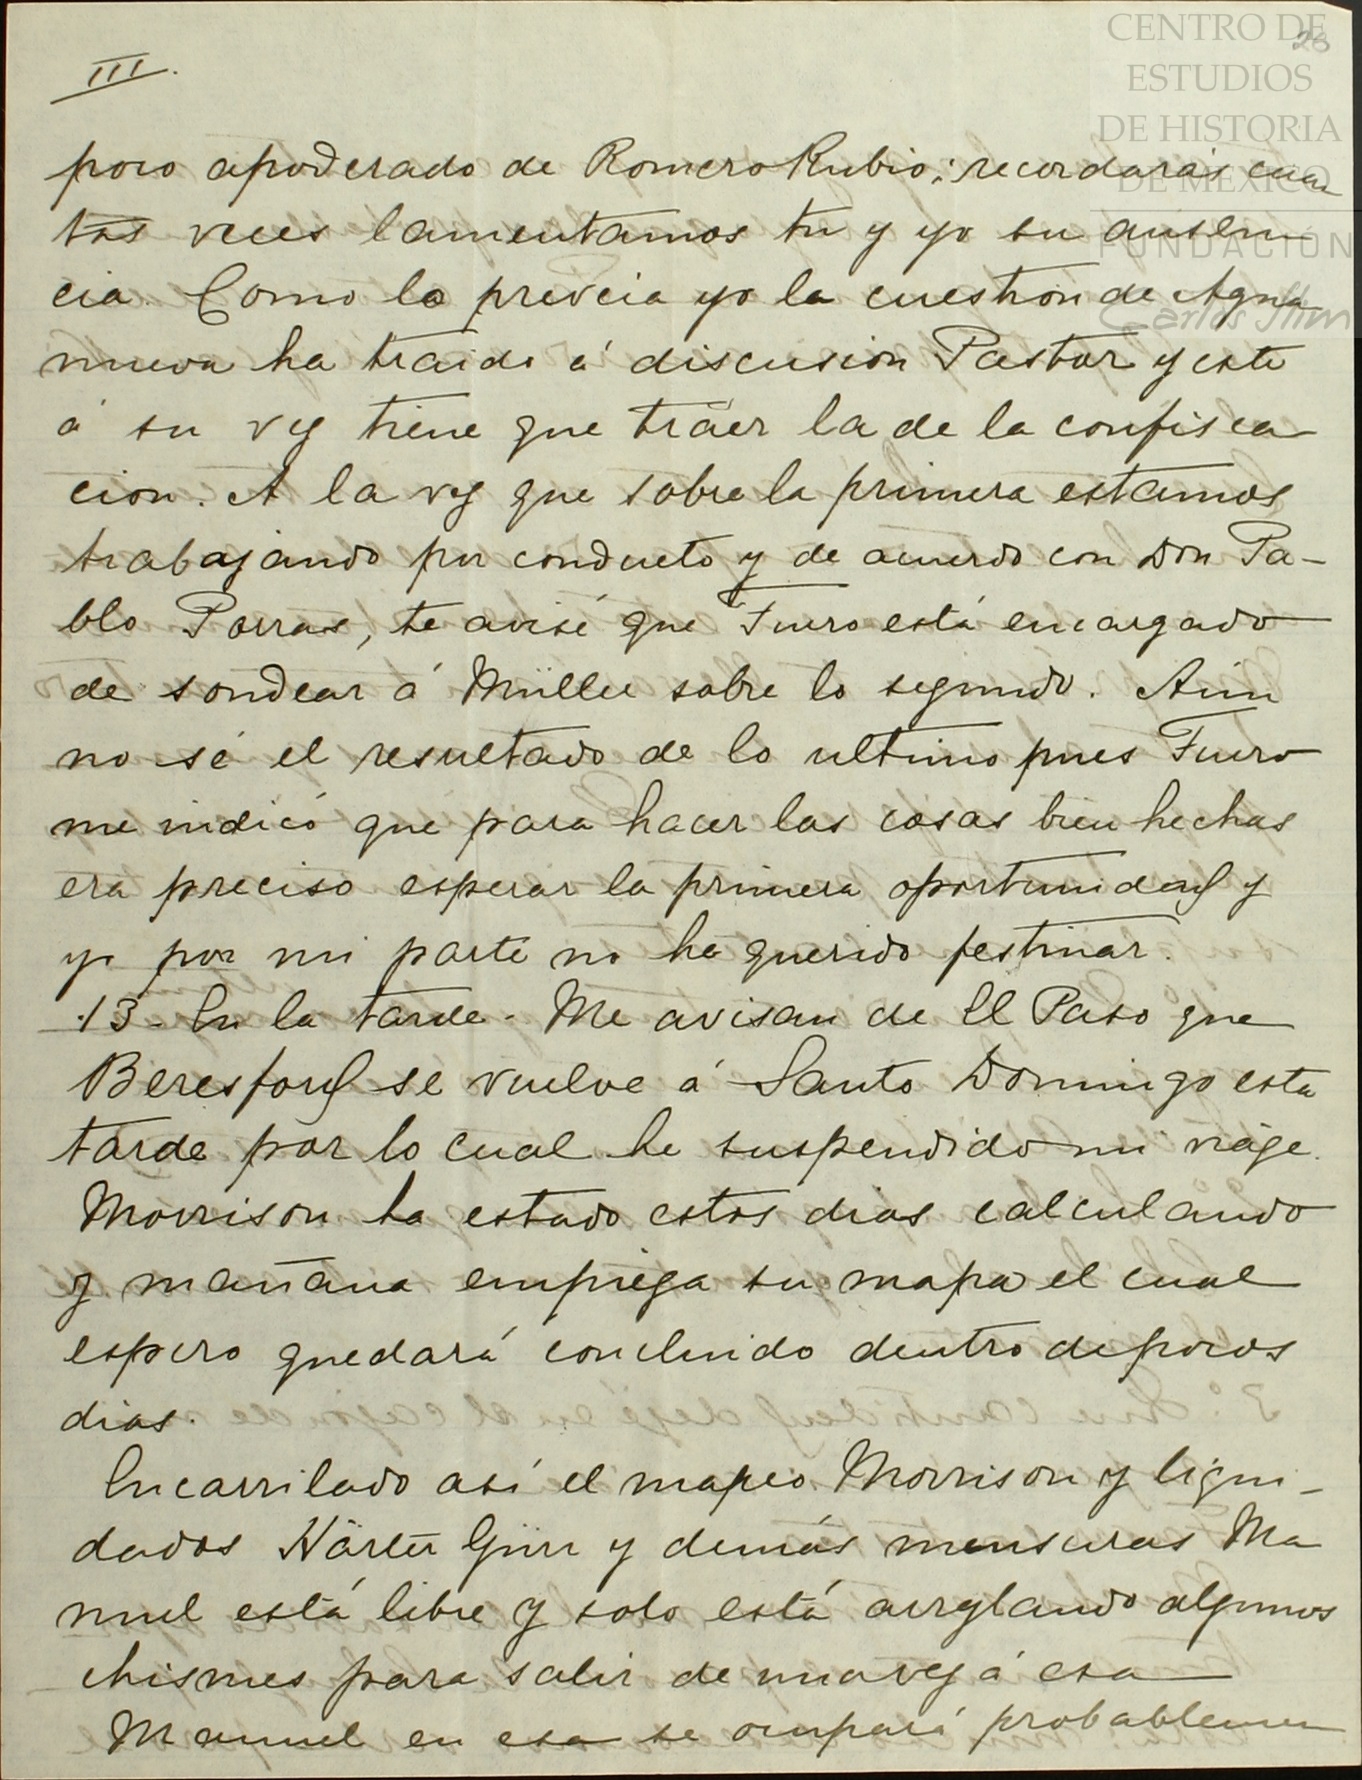 CENTRO DE
ESTUDIOS
DE HISTORIA
DE MÉXICO
FUNDACIÓN
Carlos Slim
26
III.
poco apoderado de Romero Rubio; recordarás cuan
tas veces lamentamos tu y yo su ausen
cia. Como lo preveia yo la cuestion de Agua
nueva ha traido á discusion Pastor y este
á su vez tiene que traer la de la confisca
cion. A la vez que sobre la primera estamos
trabajando por conducto y de acuerdo con Don Pa-
blo Porras, te avisé que Fuero está encargado
de sondear á Müller sobre lo segundo. Aun
no sé el resultado de lo ultimo pues Fuero
me indicó que para hacer las cosas bien hechas
era preciso esperar la primera oportunidad y
yo por mi parte no he querido festinar.
13- En la tarde - Me avisan de El Paso que
Beresford se vuelve á Santo Domingo esta
tarde por lo cual he suspendido mi viage.
Morrison ha estado estos dias calculando
y mañana empieza su mapa el cual
espero quedará concluido dentro de pocos
dias.
Encarrilado así el mapeo Morrison y liqui-
dados Härter Gürr y demás mensuras Ma
nuel está libre y solo está arreglando algunos
chismes para salir de una vez á esa
Manuel en esa se ocupará probablemen